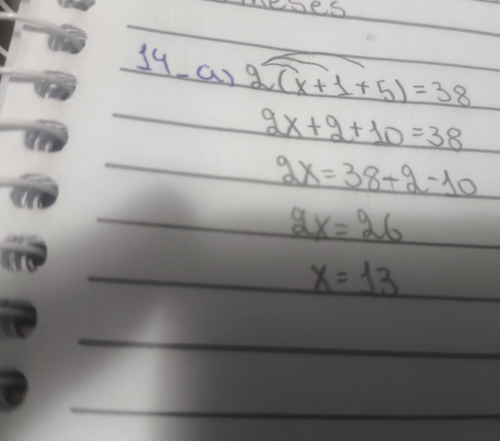 meses
14-a) 2(x+1+5)=38
2x+2+10=38
2x=38-2-10
2x=26
x=13